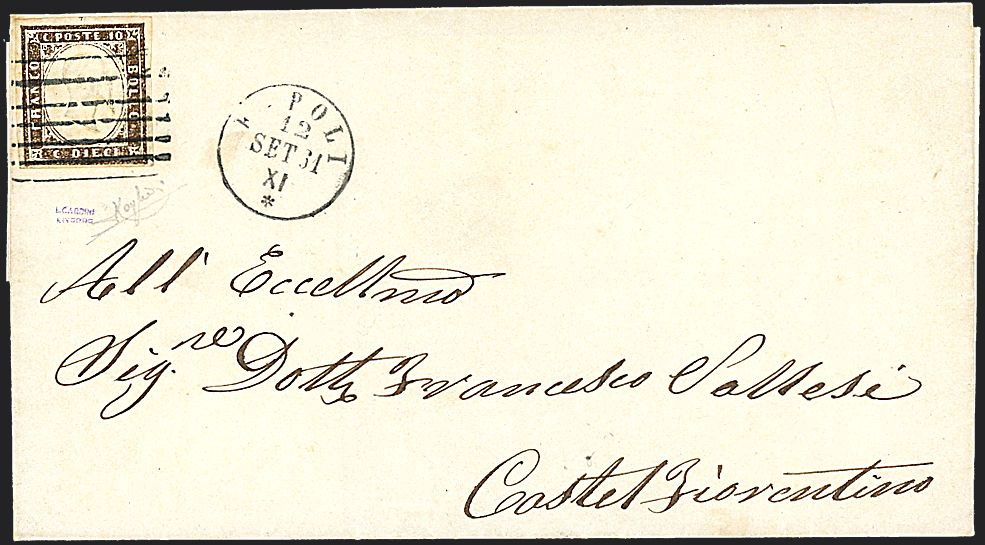 C. POSTE 10
FRANCO
BOLLO
C. DIECI
POLI
12
SET 61
XI
*
All' Eccellmo
Sig.re Dott Francesco
Castel Fiorentino